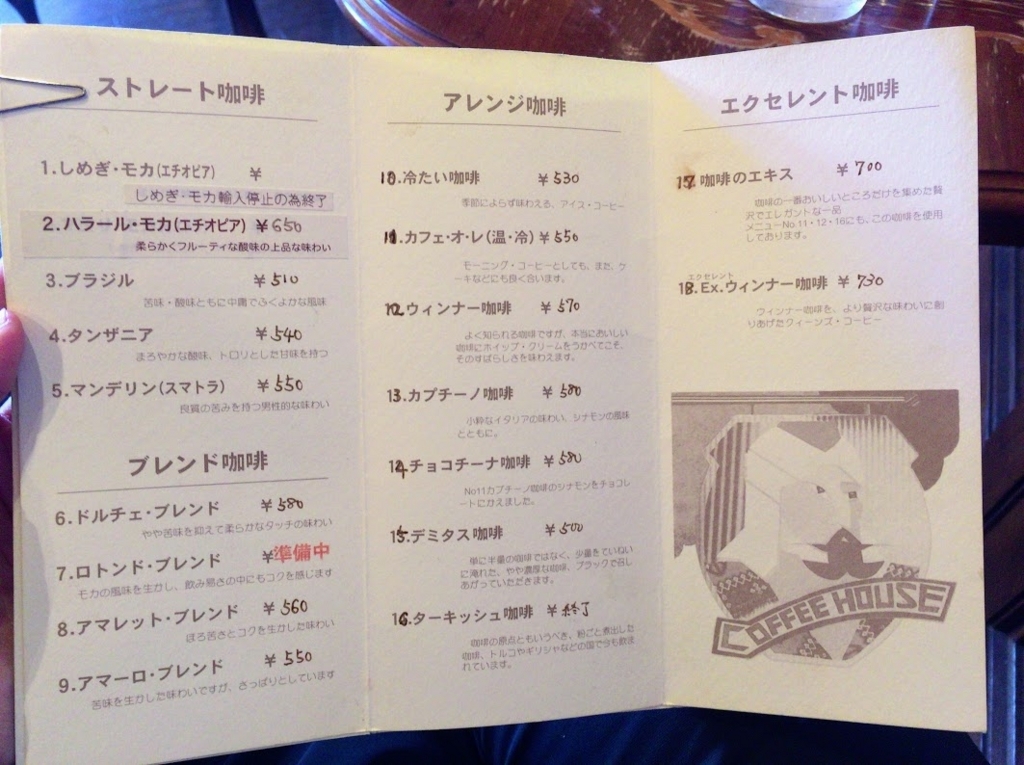 ストレート珈琲
1.しめぎ・モカ(エチオピア) ¥
しめぎ・モカ輸入停止の為終了
2.ハラール・モカ(エチオピア) ¥650
柔らかくフルーティな酸味の上品な味わい
3.ブラジル ¥510
苦味・酸味ともに中庸でふくよかな風味
4.タンザニア ¥540
まろやかな酸味、トロリとした甘味を持つ
5.マンデリン(スマトラ) ¥550
良質の苦みを持つ男性的な味わい
ブレンド珈琲
6.ドルチェ・ブレンド ¥580
やや苦味を抑えて柔らかなタッチの味わい
7.ロトンド・ブレンド ¥準備中
モカの風味を生かし、飲み易さの中にもコクを感じます
8.アマレット・ブレンド ¥560
ほろ苦さとコクを生かした味わい
9.アマーロ・ブレンド ¥550
苦味を生かした味わいですが、さっぱりとしています
アレンジ珈琲
10.冷たい珈琲 ¥530
季節によらず味わえる、アイス・コーヒー
11.カフェ・オ・レ(温・冷) ¥550
モーニング・コーヒーとしても、また、ケ
ーキなどにも良く合います。
12.ウィンナー珈琲 ¥570
よく知られる珈琲ですが、本当においしい
珈琲にホイップ・クリームをうかべてこそ、
そのすばらしさを味わえます。
13.カプチーノ珈琲 ¥580
小粋なイタリアの味わい、シナモンの風味
とともに。
14.チョコチーナ珈琲 ¥580
No11カプチーノ珈琲のシナモンをチョコレ
ートにかえました。
15.デミタス珈琲 ¥500
単に半量の珈琲ではなく、少量をていねい
に淹れた、やや濃厚な珈琲、ブラックで召し
あがっていただきます。
16.ターキッシュ珈琲 ¥終了
珈琲の原点ともいうべき、粉ごと煮出した
珈琲、トルコやギリシャなどの国で今も飲ま
れています。
エクセレント珈琲
17.珈琲のエキス ¥700
珈琲の一番おいしいところだけを集めた贅
沢でエレガントな一品
メニューNo.11・12・16にも、この珈琲を使用
しております。
エクセレント
18.Ex.ウィンナー珈琲 ¥730
ウィンナー珈琲を、より贅沢な味わいに創
りあげたクィーンズ・コーヒー
COFFEE HOUSE